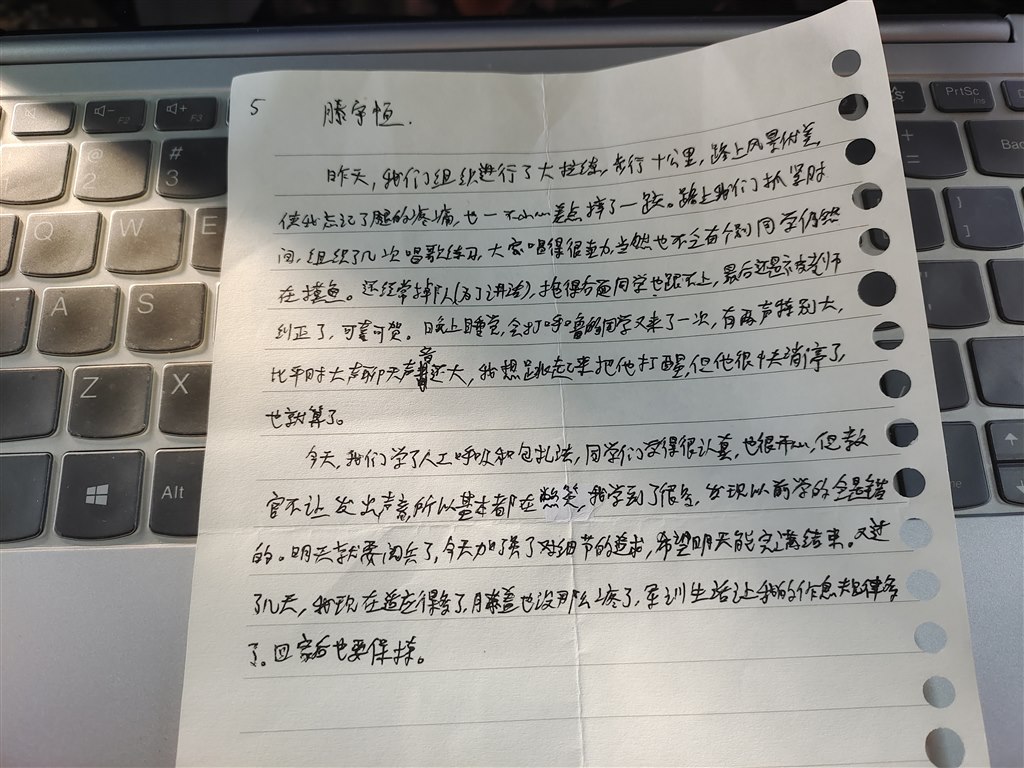 5 滕宇恒.
昨天,我们组织进行了大拉练,步行十公里,路上风景优美
使我忘记了腿的疼痛,也一不小心差点摔了一跤。路上我们抓紧时
间,组织了几次唱歌练习,大家唱得很卖力,当然也不乏有个别同学仍然
在摸鱼。还经常掉队(为了讲话),拖得后面同学也跟不上,最后还是被教师
纠正了,可喜可贺。晚上睡觉,会打呼噜的同学又来了一次,有两声特别大,
比平时大声聊天声音还大,我想跳起来把他打醒,但他很快消停了,
也就算了。
今天,我们学了人工呼吸和包扎法,同学们学得很认真,也很开心,但教
官不让发出声音,所以基本都在憋笑,我学到了很多,发现以前学的全是错
的。明天就要阅兵了,今天加强了对细节的追求,希望明天能完满结束。又过
了几天,我现在适应得多了,膝盖也没那么疼了,军训生活让我的作息规律多
了。回家后也要保持。
PrtSc
Ins
Back
F2
F3
@
2
#
3
Q
W
E
A
S
Z
X
Alt
+
=
]